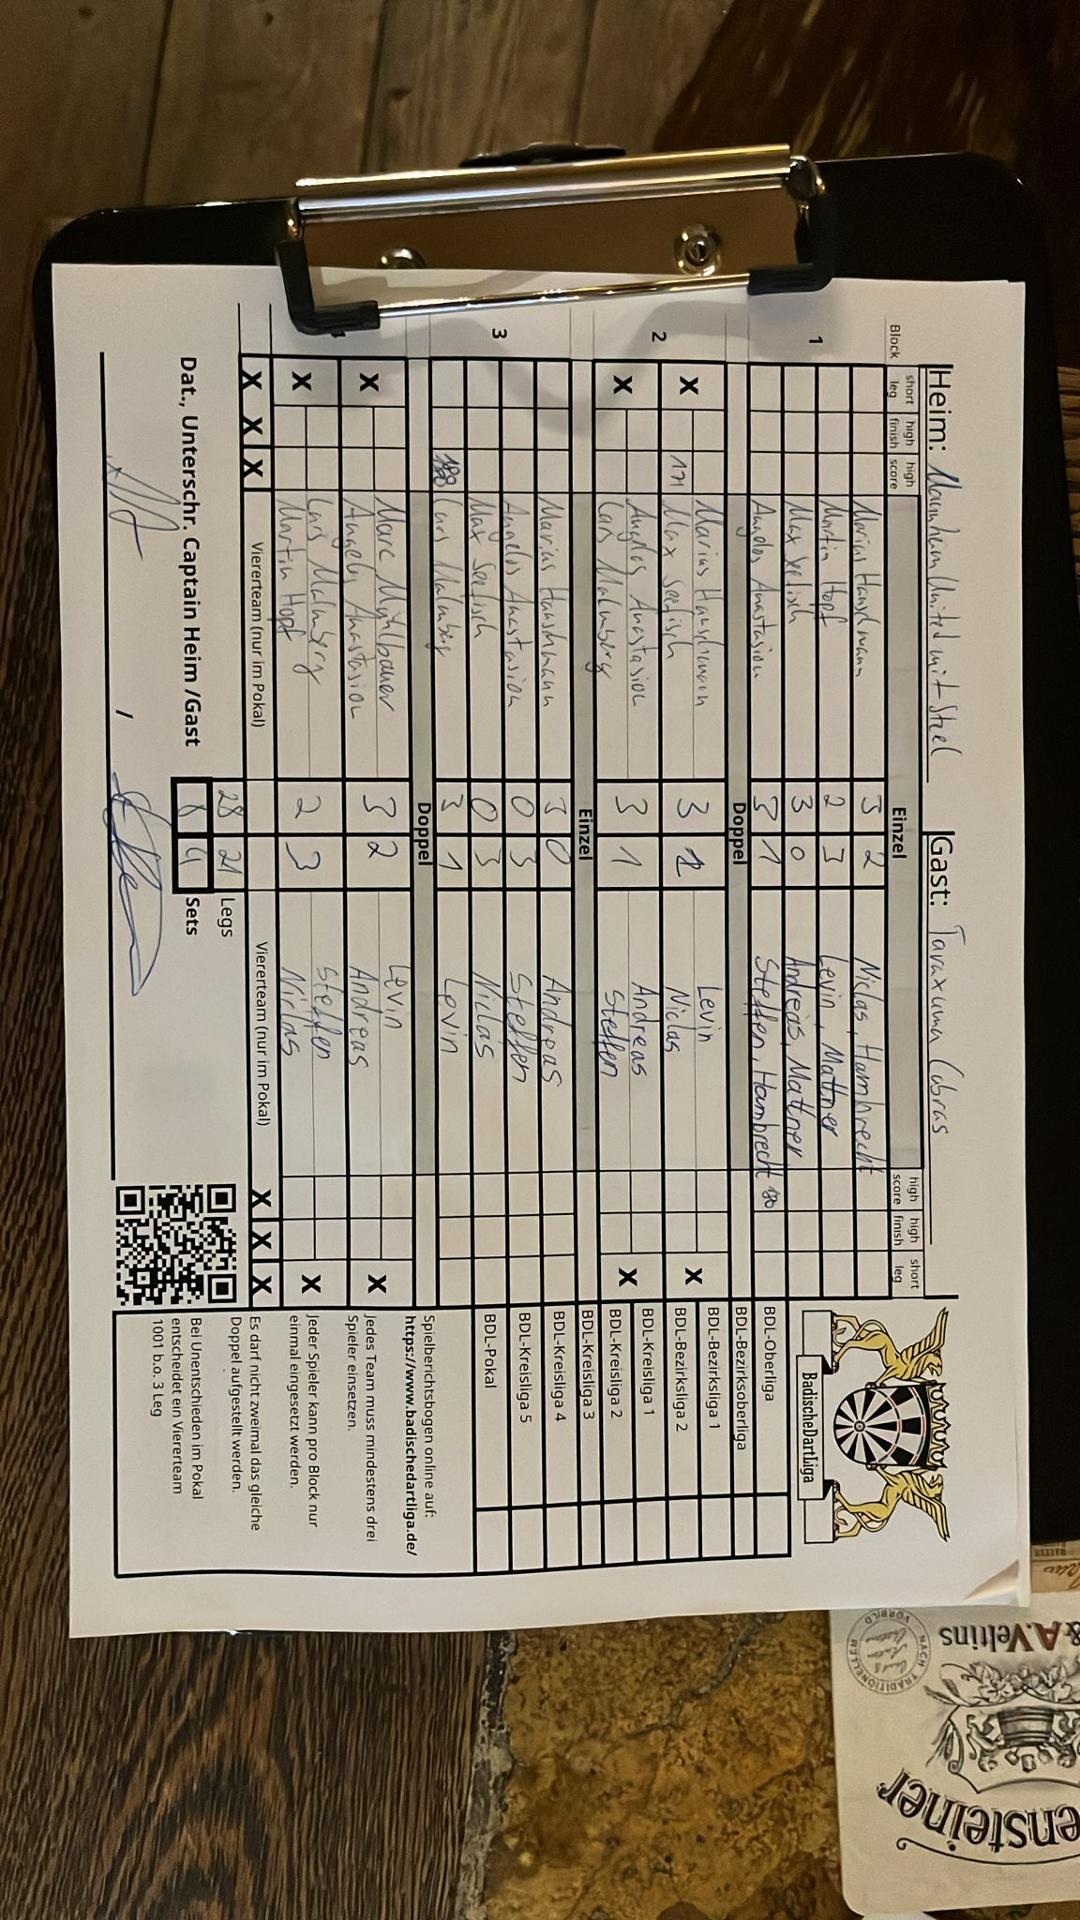 Heim: Mannheim United mit Steel Gast: Taraxuma Cobras
Block short leg high finish high score Einzel high score high finish short leg
1 Marius Hanshmann 3 2 Niclas, Hambrecht
Martin Hopf 2 3 Levin, Mattner
Max Seelisch 3 0 Andreas, Mattner
Angelos Anastasiou 3 1 Steffen, Hambrecht 180
Doppel
2 Marius Hanshmann Levin
X 171 Max Seelisch 3 2 Niclas X
Angelos Anastasiou Andreas
X Lars Malmberg 3 1 Steffen X
Einzel
3 Marius Hanshmann 3 0 Andreas
Angelos Anastasiou 0 3 Steffen
Max Seelisch 0 3 Niclas
180 Lars Malmberg 3 1 Levin
Doppel
Marc Mühlbauer Levin
X Angelos Anastasiou 3 2 Andreas X
Lars Malmberg Steffen
X Martin Hopf 2 3 Niclas X
X X X Viererteam (nur im Pokal) Viererteam (nur im Pokal) X X X
28 21 Legs
8 4 Sets
Dat., Unterschr. Captain Heim /Gast
/
BadischeDartLiga
BDL-Oberliga
BDL-Bezirksoberliga
BDL-Bezirksliga 1
BDL-Bezirksliga 2
BDL-Kreisliga 1
BDL-Kreisliga 2
BDL-Kreisliga 3
BDL-Kreisliga 4
BDL-Kreisliga 5
BDL-Pokal
Spielberichtsbogen online auf:
https://www.badischedartliga.de/
Jedes Team muss mindestens drei
Spieler einsetzen.
Jeder Spieler kann pro Block nur
einmal eingesetzt werden.
Es darf nicht zweimal das gleiche
Doppel aufgestellt werden.
Bei Unentschieden im Pokal
entscheidet ein Viererteam
1001 b.o. 3 Leg
& A. Veltins
NACH TRADITIONELLEM
VORBILD
ensteiner